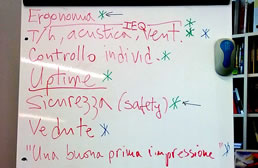 Ergonomia *←
IEQ
T/h, acustica, vent. **
Controllo individ. *
Uptime *
Sicurezza (safety) *←
Vedute *
"Una buona prima impressione" *